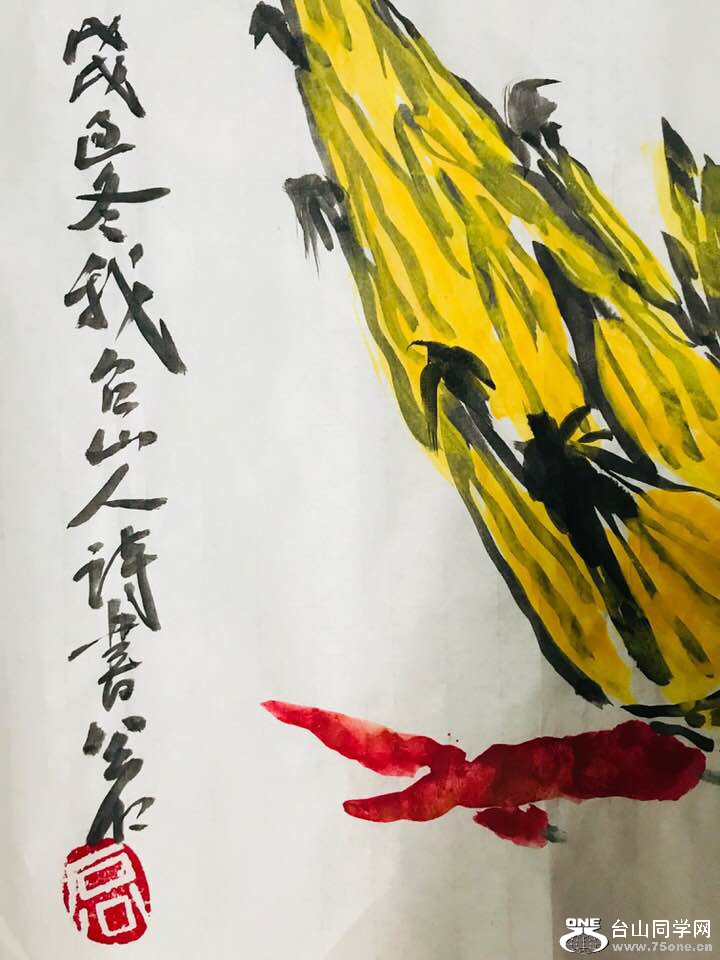 戊戌过冬我台山人诗书
ONE
台山同学网
www.75one.cn